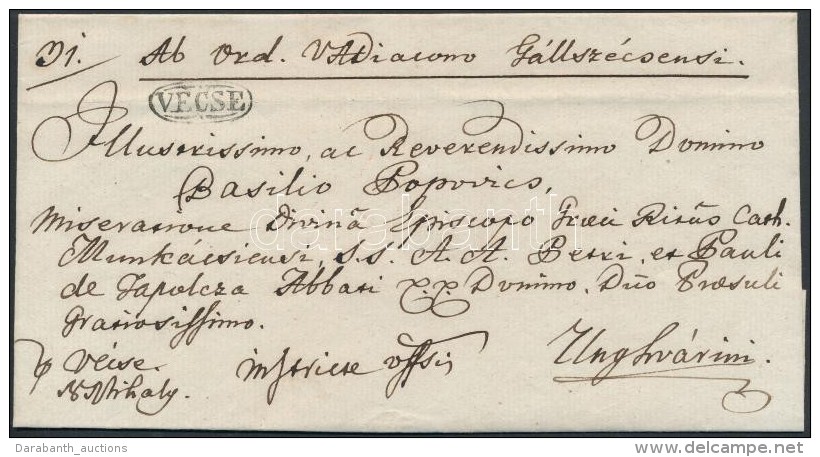 Ab Ord. VADiacono Gállszécsensi.
VÉCSE
Illustrissimo, ac Reverendissimo Domino
Basilio Popovics,
Miseratione Divinâ Episcopo Graeci Ritûs Cath.
Munkácsiensi, S.S. A.A. Petri, et Pauli
de Tapolcza Abbati p.p. Domino, Dño Praesuli
Gratiosissimo.
Vécse. in stricte offsis Unghvárini.
N Mihaly.
darabanth
Darabanth_auctions
delcampe.net